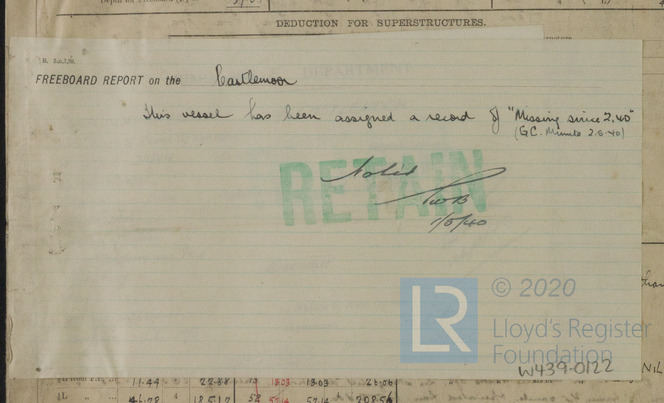 DEDUCTION FOR SUPERSTRUCTURES.
FREEBOARD REPORT on the Castlemoor
This vessel has been assigned a record of "Missing since 2.40"
(G.C. Minute 2.5.40)
RETAIN
Noted
1/5/40
LR
© 2020
Lloyd's Register
Foundation
W439-0122
NIL
11.44 22.88
13.03 26.06